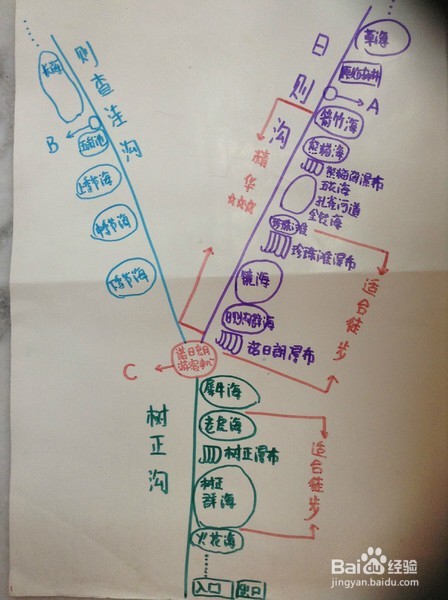 则查洼沟
长海
B
五彩池
上季节海
中季节海
下季节海
日则沟
草海
原始森林
A
箭竹海
熊猫海
熊猫海瀑布
五花海
孔雀河道
金铃海
珍珠滩
珍珠滩瀑布
镜海
诺日朗群海
诺日朗瀑布
精华
☆☆☆
适合徒步
诺日朗
游客中心
C
树正沟
犀牛海
老虎海
树正瀑布
树正
群海
火花海
适合徒步
入口
出口
Baidu经验
jingyan.baidu.com